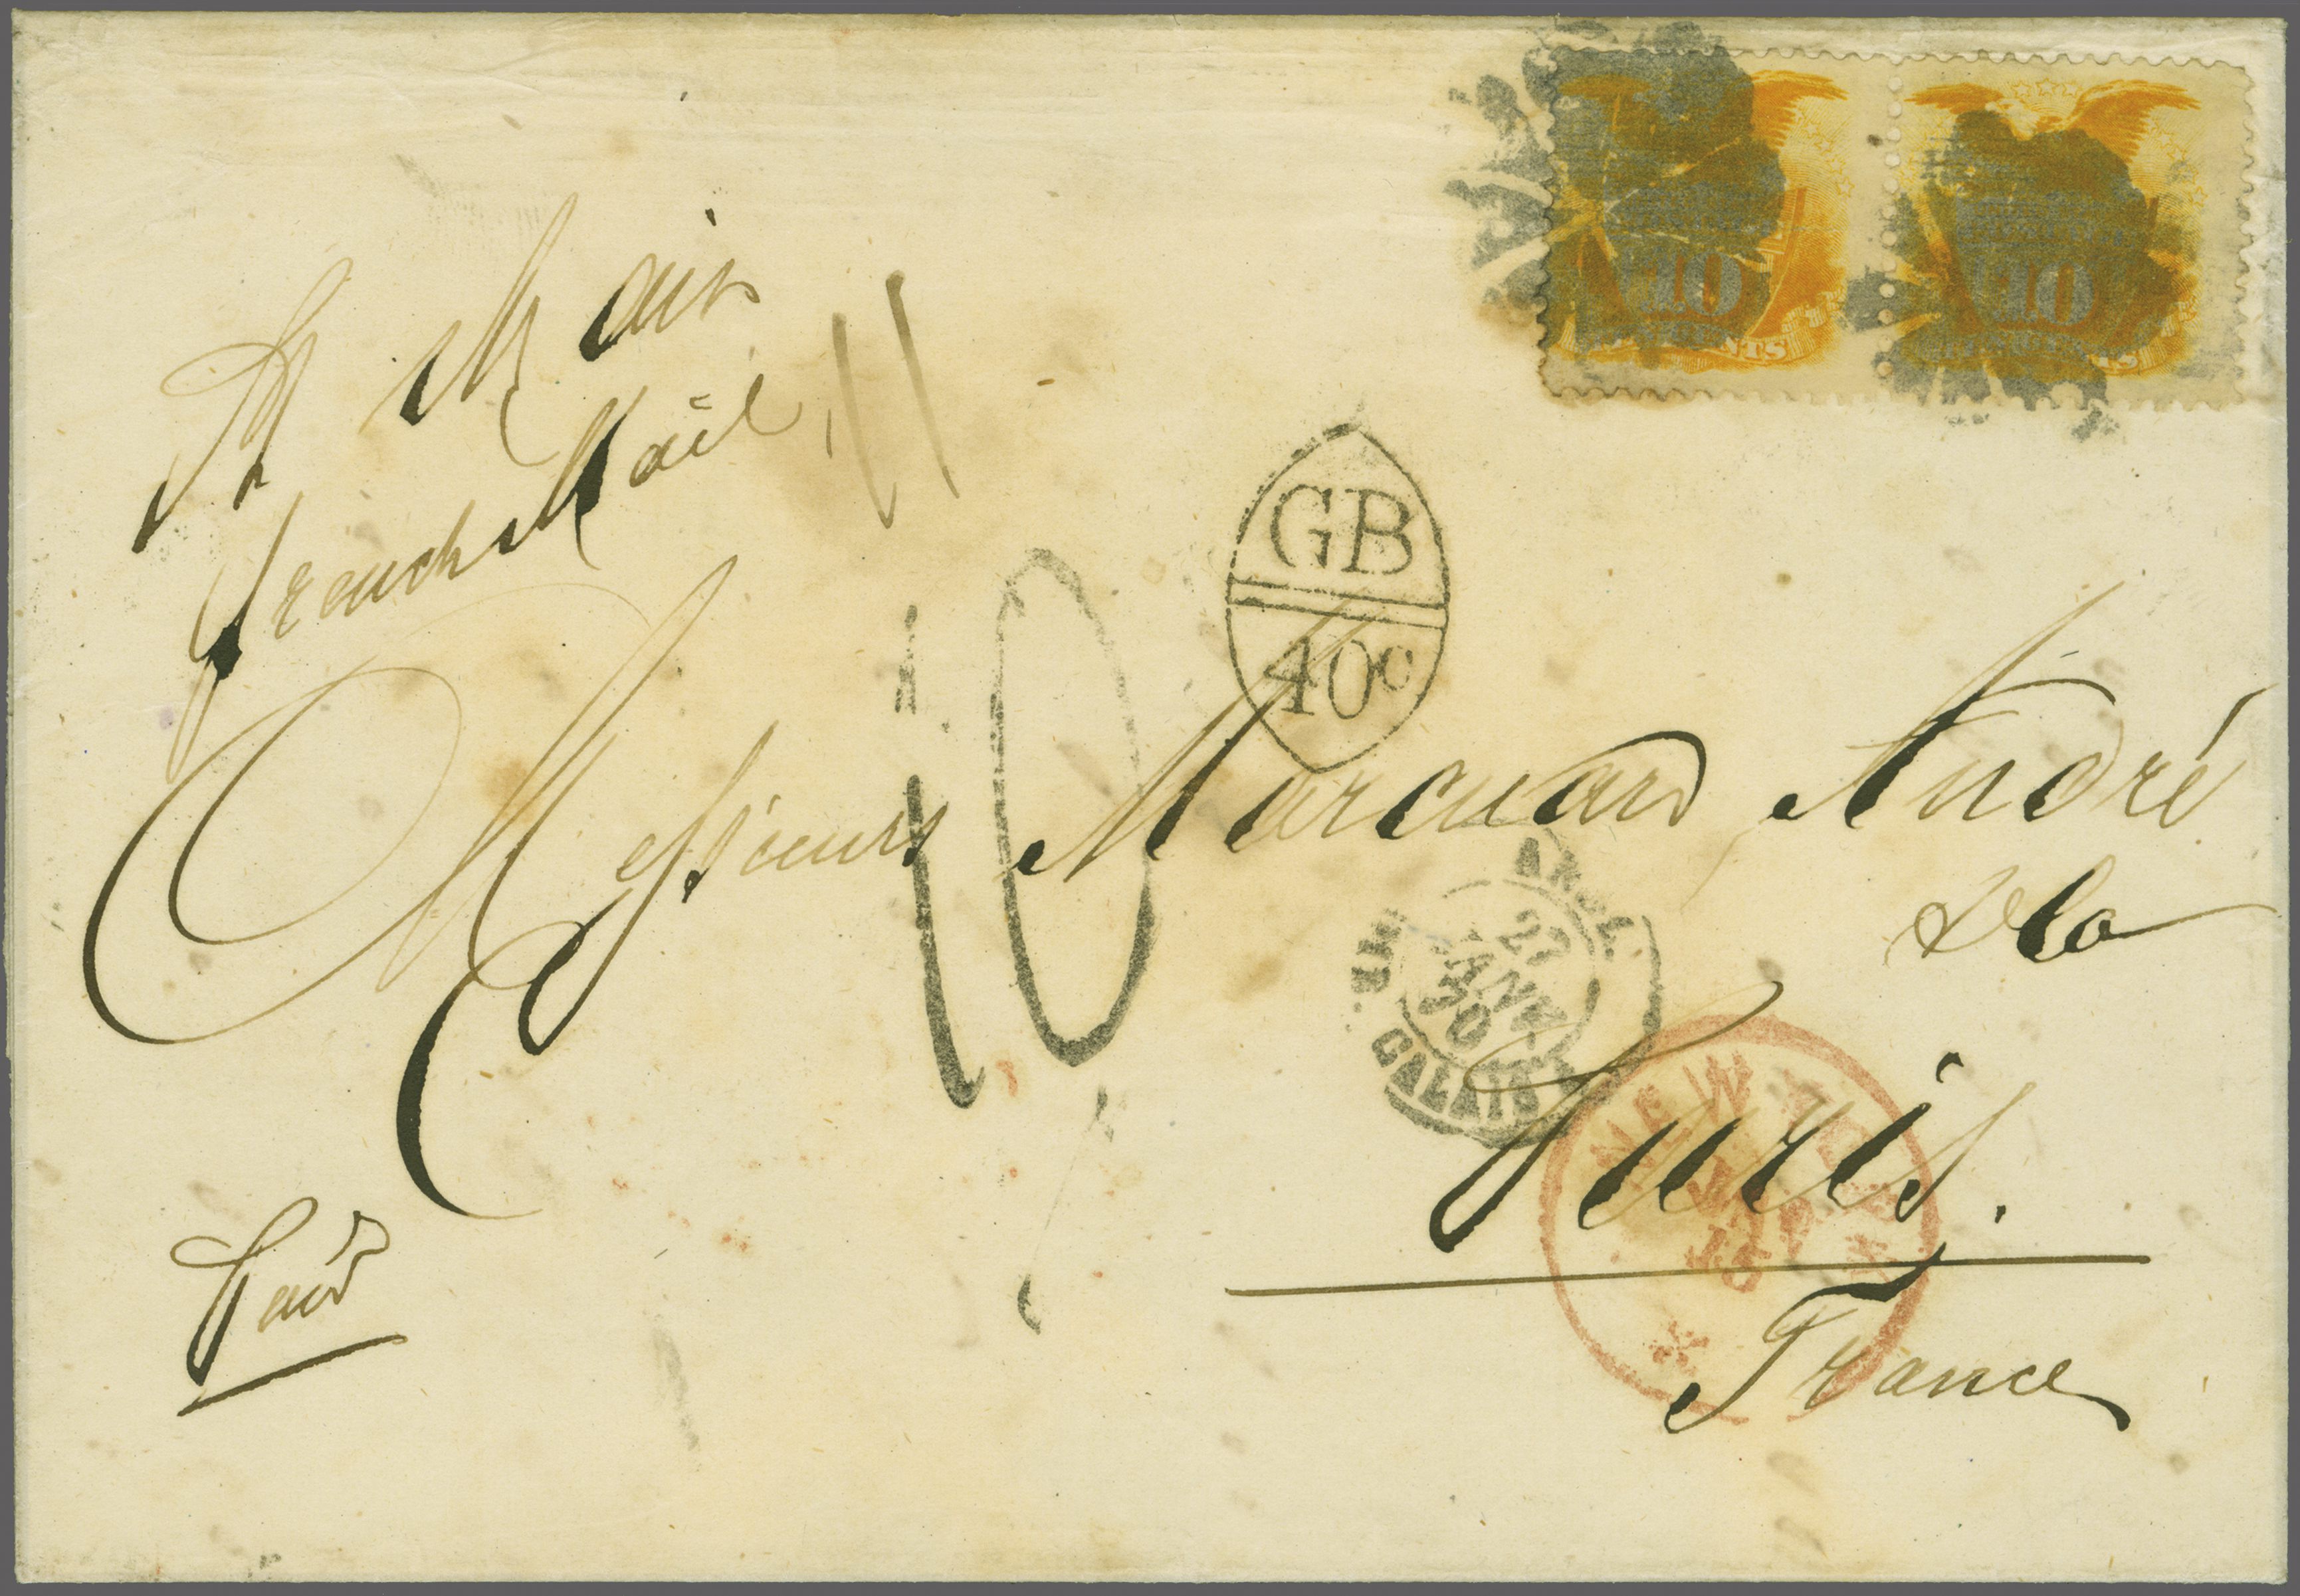 10 10
CENTS
French Mail
GB
40c
10
Messieurs Marcuard André
& Co
ANGL.
27
JANV
70
CALAIS
Paris.
NEW YORK
France
Paid